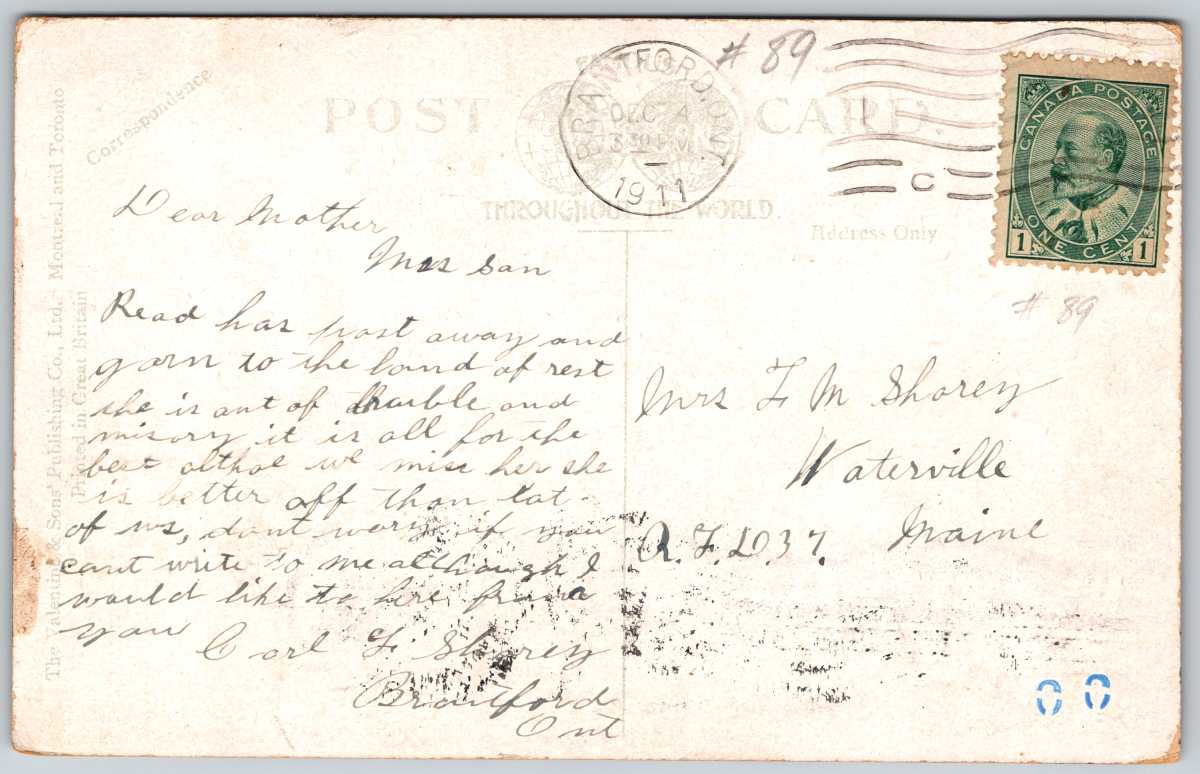 # 89
POST CARD.
BRANTFORD, ONT.
DEC 4
1911
C
CANADA POSTAGE
1 ONE CENT 1
THROUGHOUT THE WORLD.
Correspondence
Address Only
# 89
The Valentine & Sons' Publishing Co., Ltd. Montreal and Toronto
Printed in Great Britain
Dear Mother
San
Read has past away and
gorn to the land of rest
she is out of truble and
misory it is all for the
best althoe we miss her she
is better off than lat-
of us, dont wory if you
cant write to me although I
would like to here from
you
Carl F Shorey
Brantford
Ont
Mrs F M Shorey
Waterville
R.F.D 37. Maine